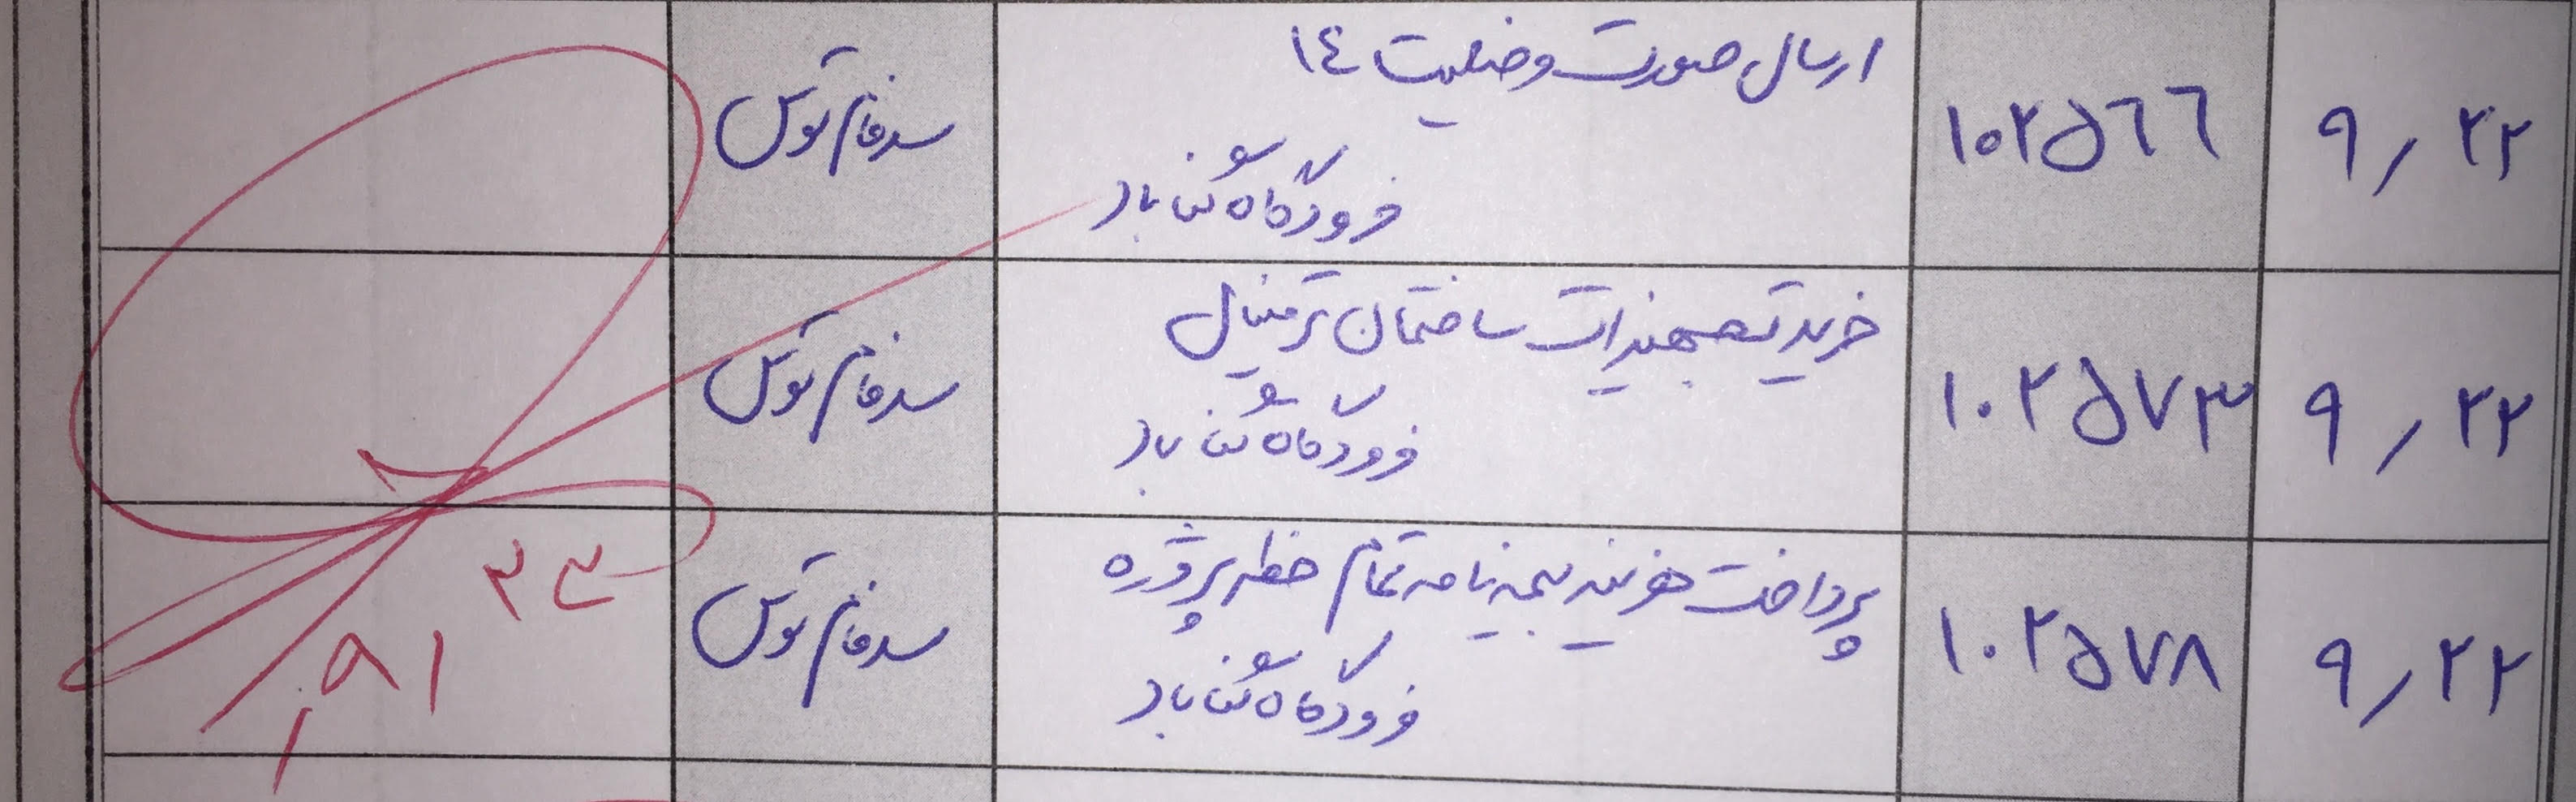 ۹/۲۲
۱۰۲۵۶۶
ارسال صورت وضعیت ۱۴
فرودگاه گناباد
سدفام توس
۹/۲۲
۱۰۲۵۷۳
خرید تجهیزات ساختمان ترمینال
فرودگاه گناباد
سدفام توس
۹/۲۲
۱۰۲۵۷۸
پرداخت هزینه بیمه نامه تمام خطر پروژه
فرودگاه گناباد
سدفام توس